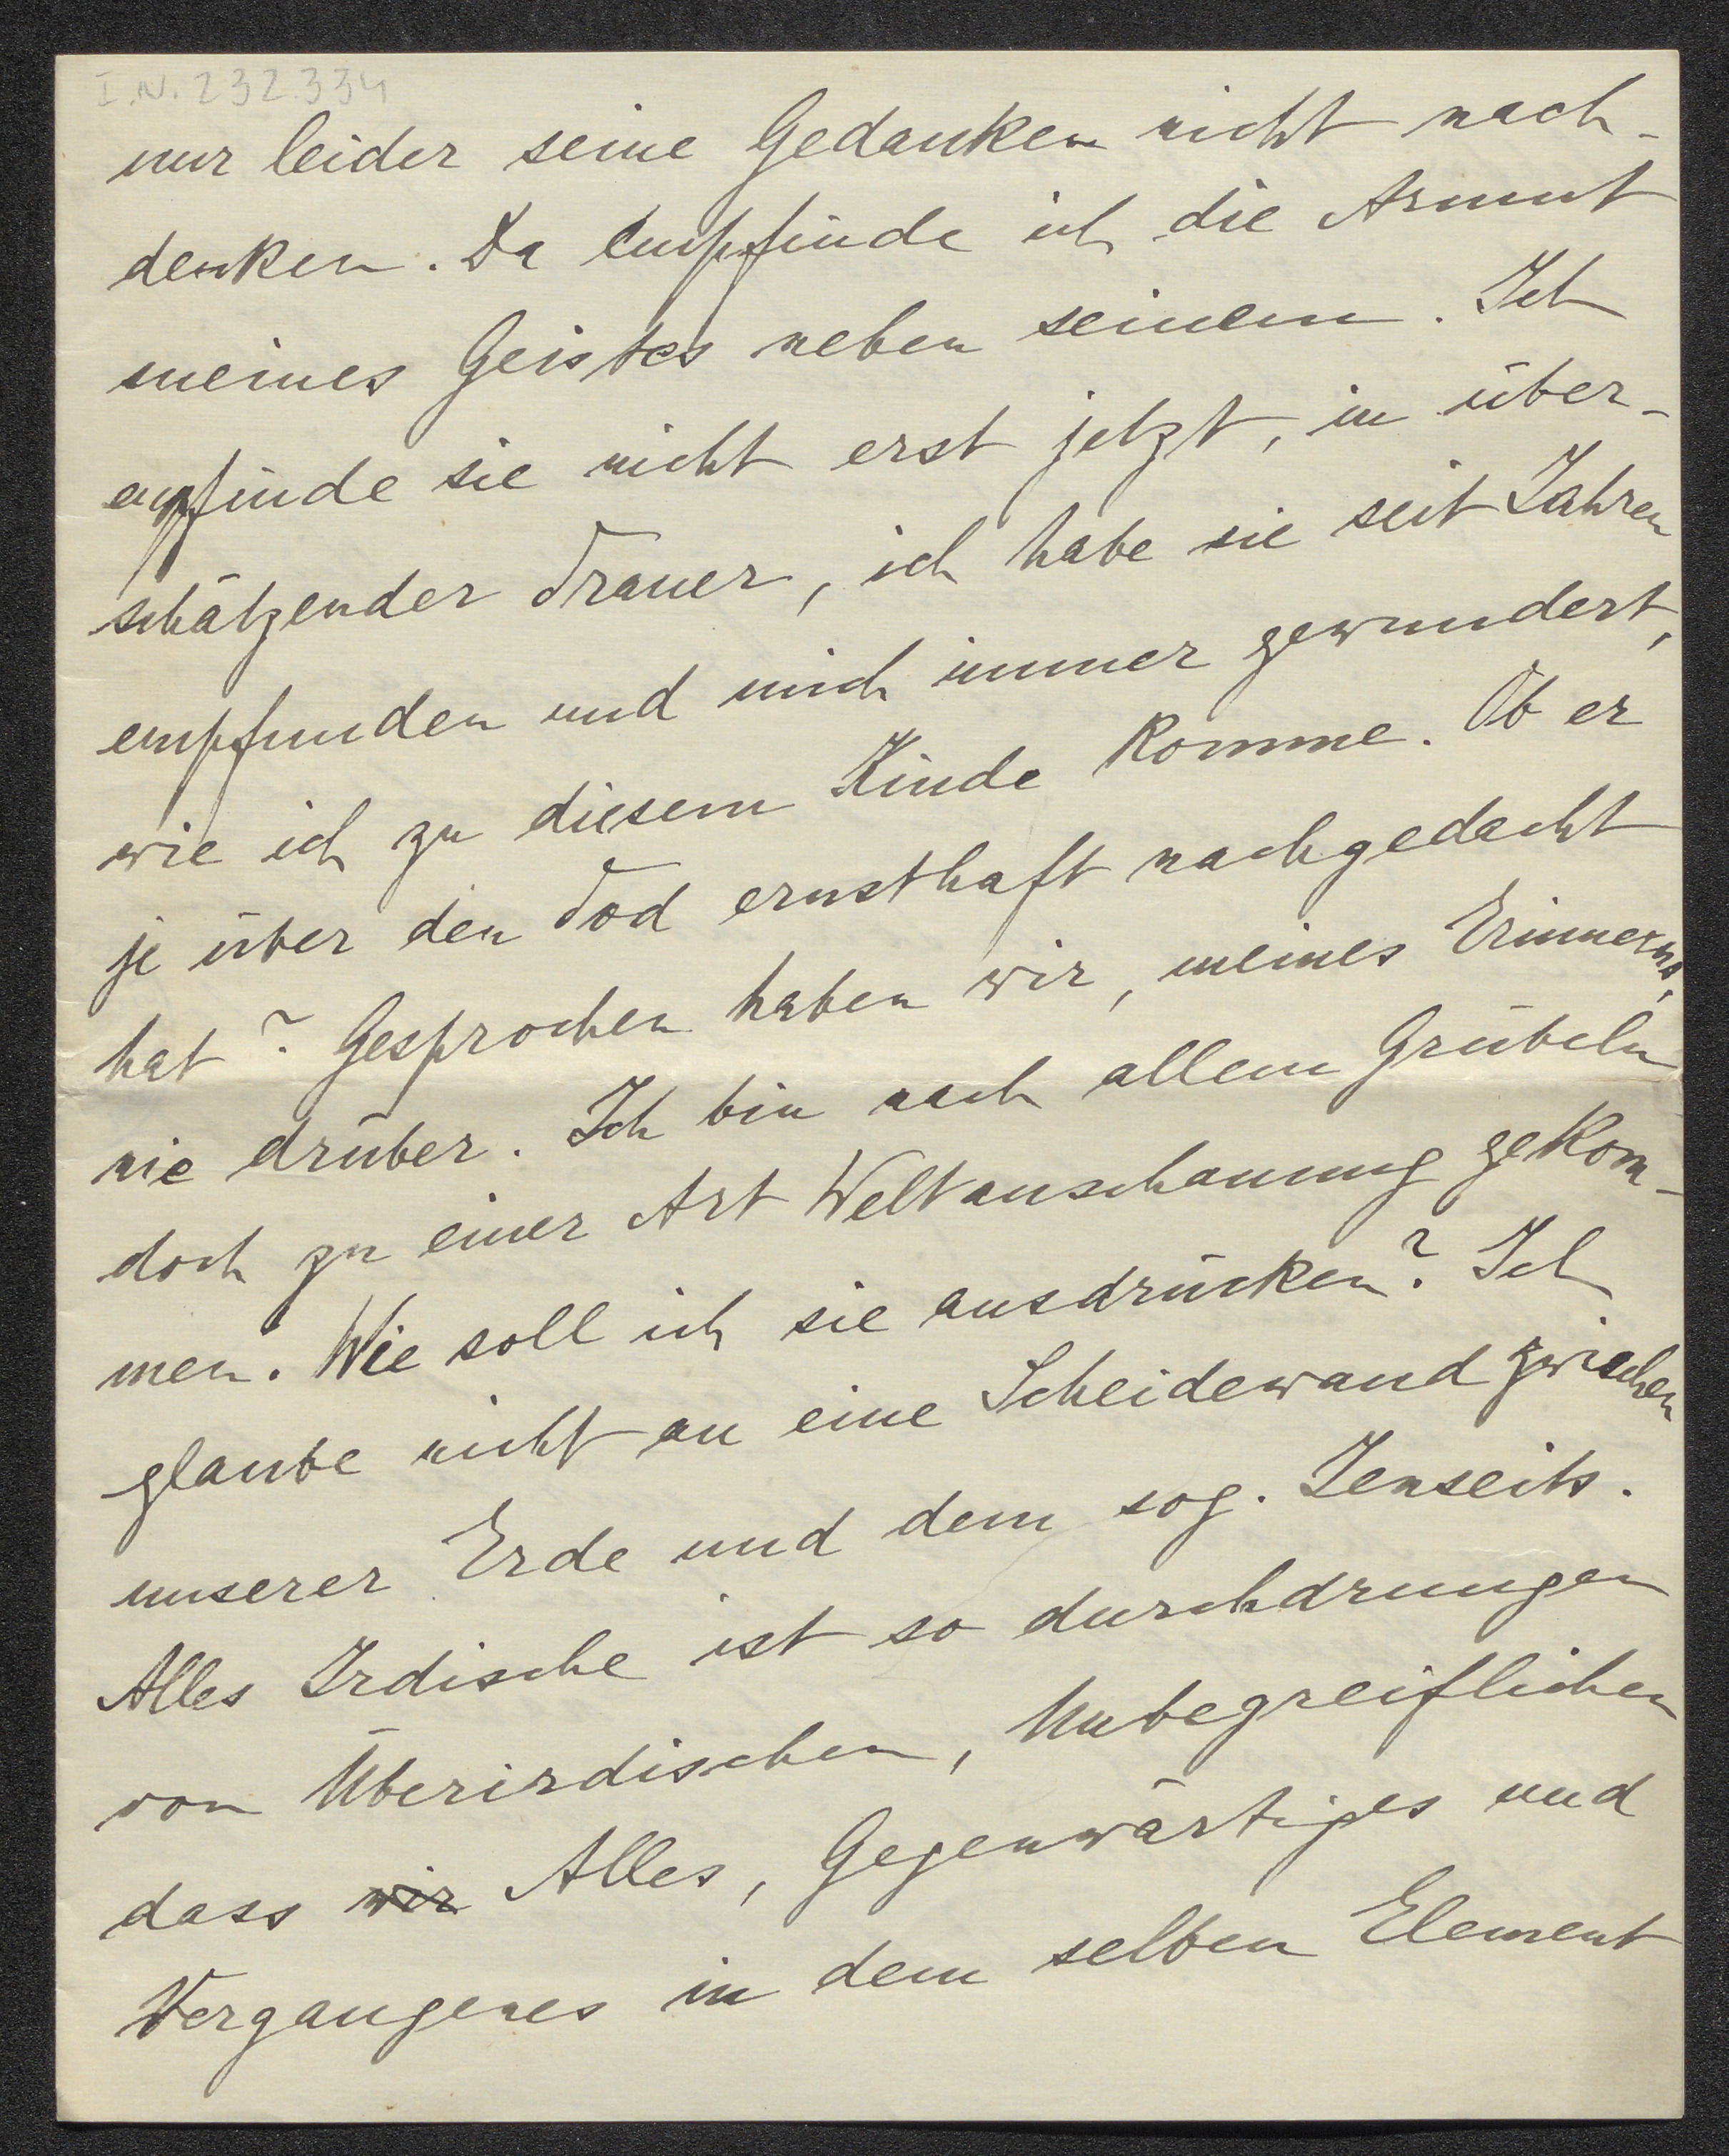 I.N. 232.334
nur leider seine Gedanken nicht nach-
denken. Da empfinde ich die Armut
meines Geistes neben seinem. Ich
empfinde sie nicht erst jetzt, in über-
schätzender Trauer, ich habe sie seit Jahren
empfunden und mich immer gewundert,
wie ich zu diesem Kinde komme. Ob er
je über den Tod ernsthaft nachgedacht
hat? Gesprochen haben wir, meines Erinnerns,
nie drüber. Ich bin nach allem Grübeln
doch zu einer Art Weltanschauung gekom-
men. Wie soll ich sie ausdrücken? Ich
glaube nicht an eine Scheidewand zwischen
unserer Erde und dem sog. Jenseits.
Alles Irdische ist so durchdrungen
von Überirdischen, Unbegreiflichen
dass wir Alles, Gegenwärtiges und
Vergangenes in dem selben Element